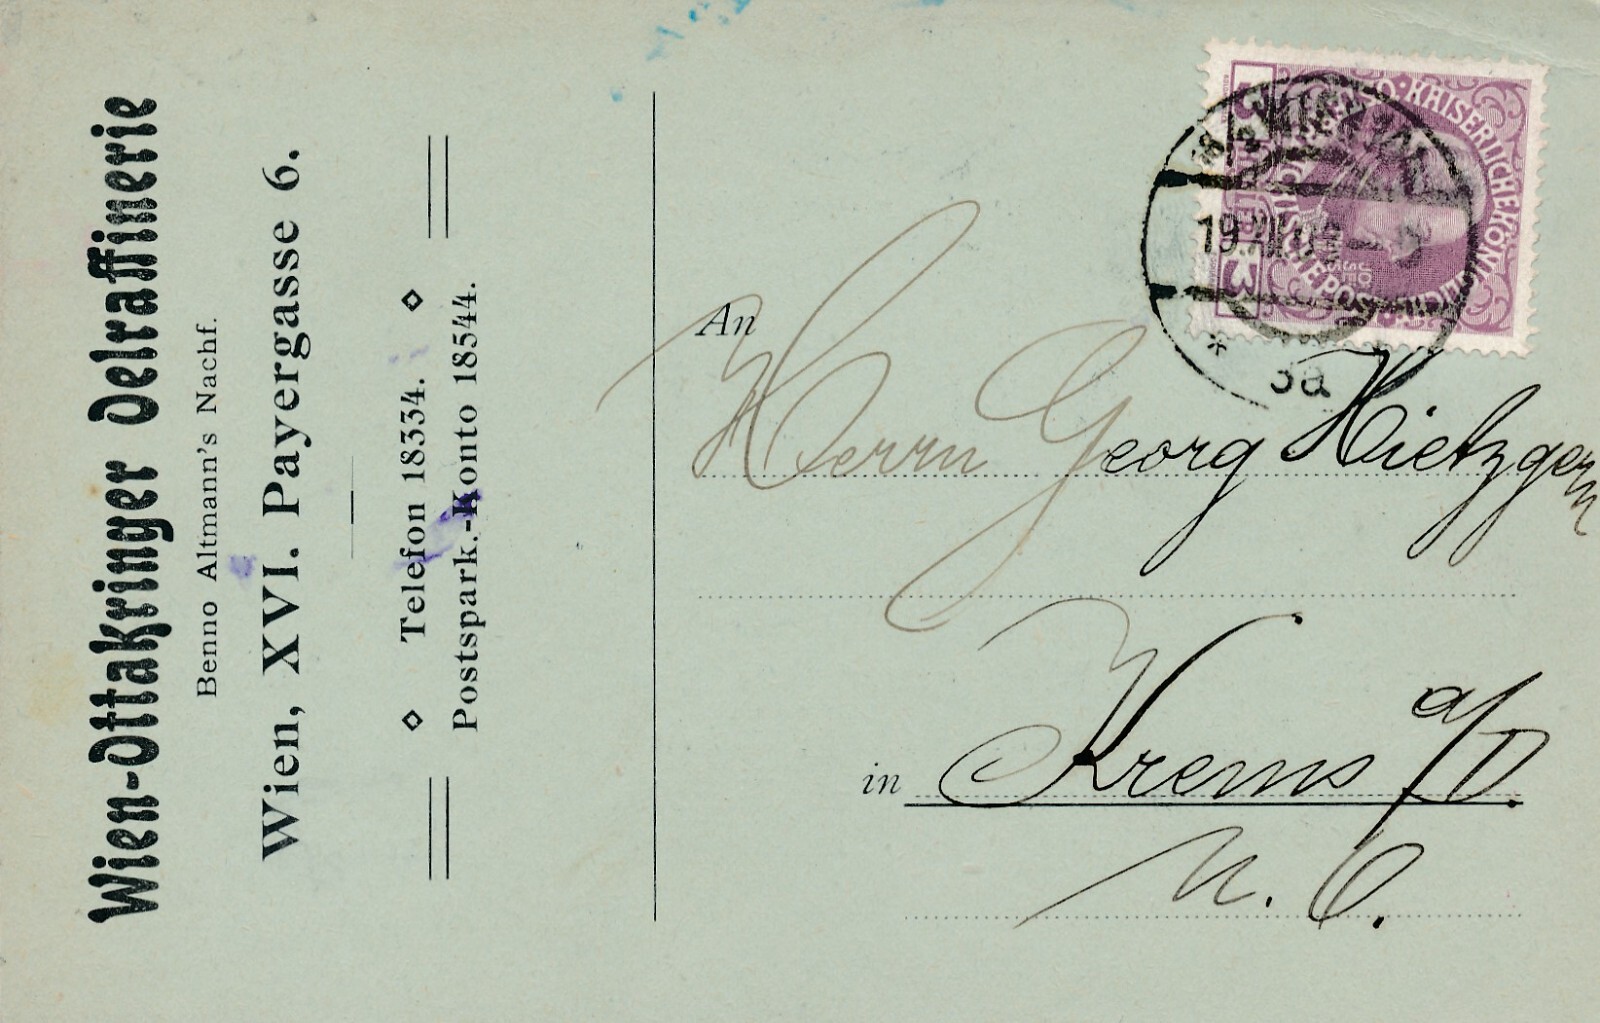 Wien-Ottakringer Oelraffinerie
Benno Altmann's Nachf.
Wien, XVI. Payergasse 6.
Telefon 18334.
Postspark.-Konto 18544.
An
Herrn Georg Hietzgern
in Krems a/D.
N. Ö.
18/1 WIEN
19
3a
*
3
KAISERLICHE KÖNIGLICHE
ÖSTERREICHISCHE POST
3